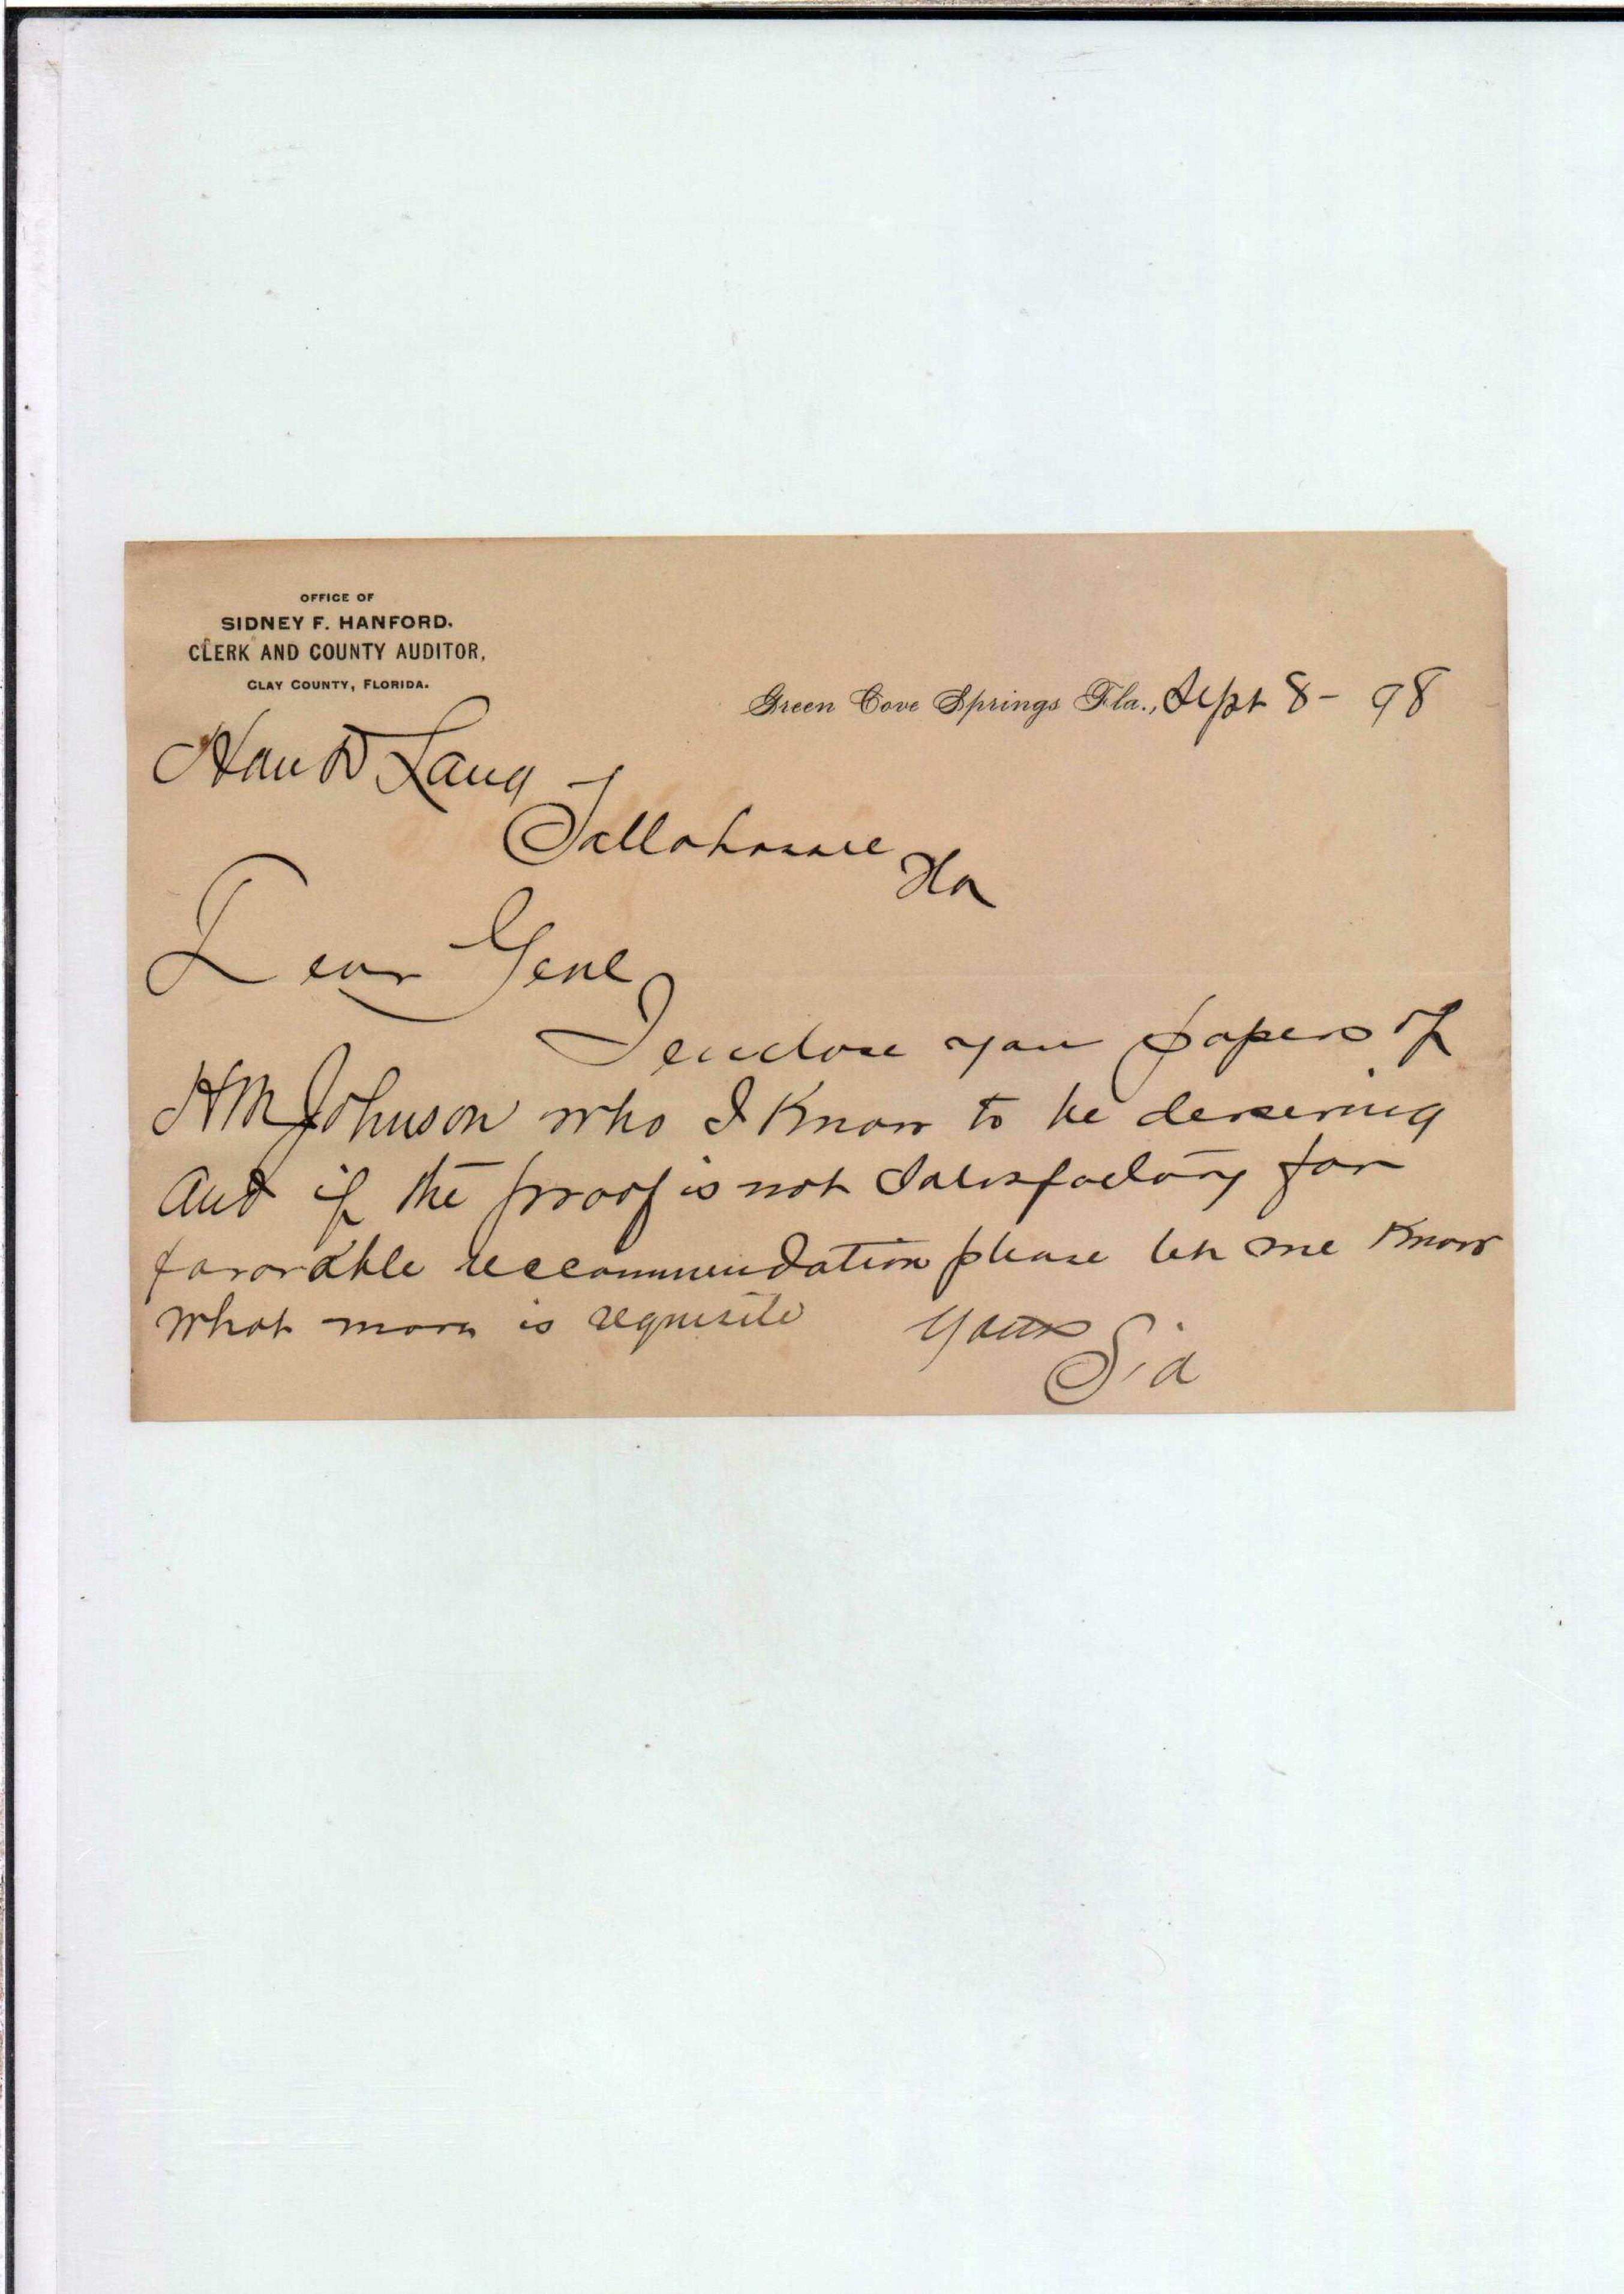 OFFICE OF
SIDNEY F. HANFORD,
CLERK AND COUNTY AUDITOR,
CLAY COUNTY, FLORIDA.
Green Cove Springs Fla., Sept 8 - 98
Hon D Lang
Tallahassee
Fla
Dear Genl
I enclose you papers of
HM Johnson who I know to be deserving
and if the proof is not satisfactory for
favorable reccommendation please let me know
what more is requisite Yours
Sid